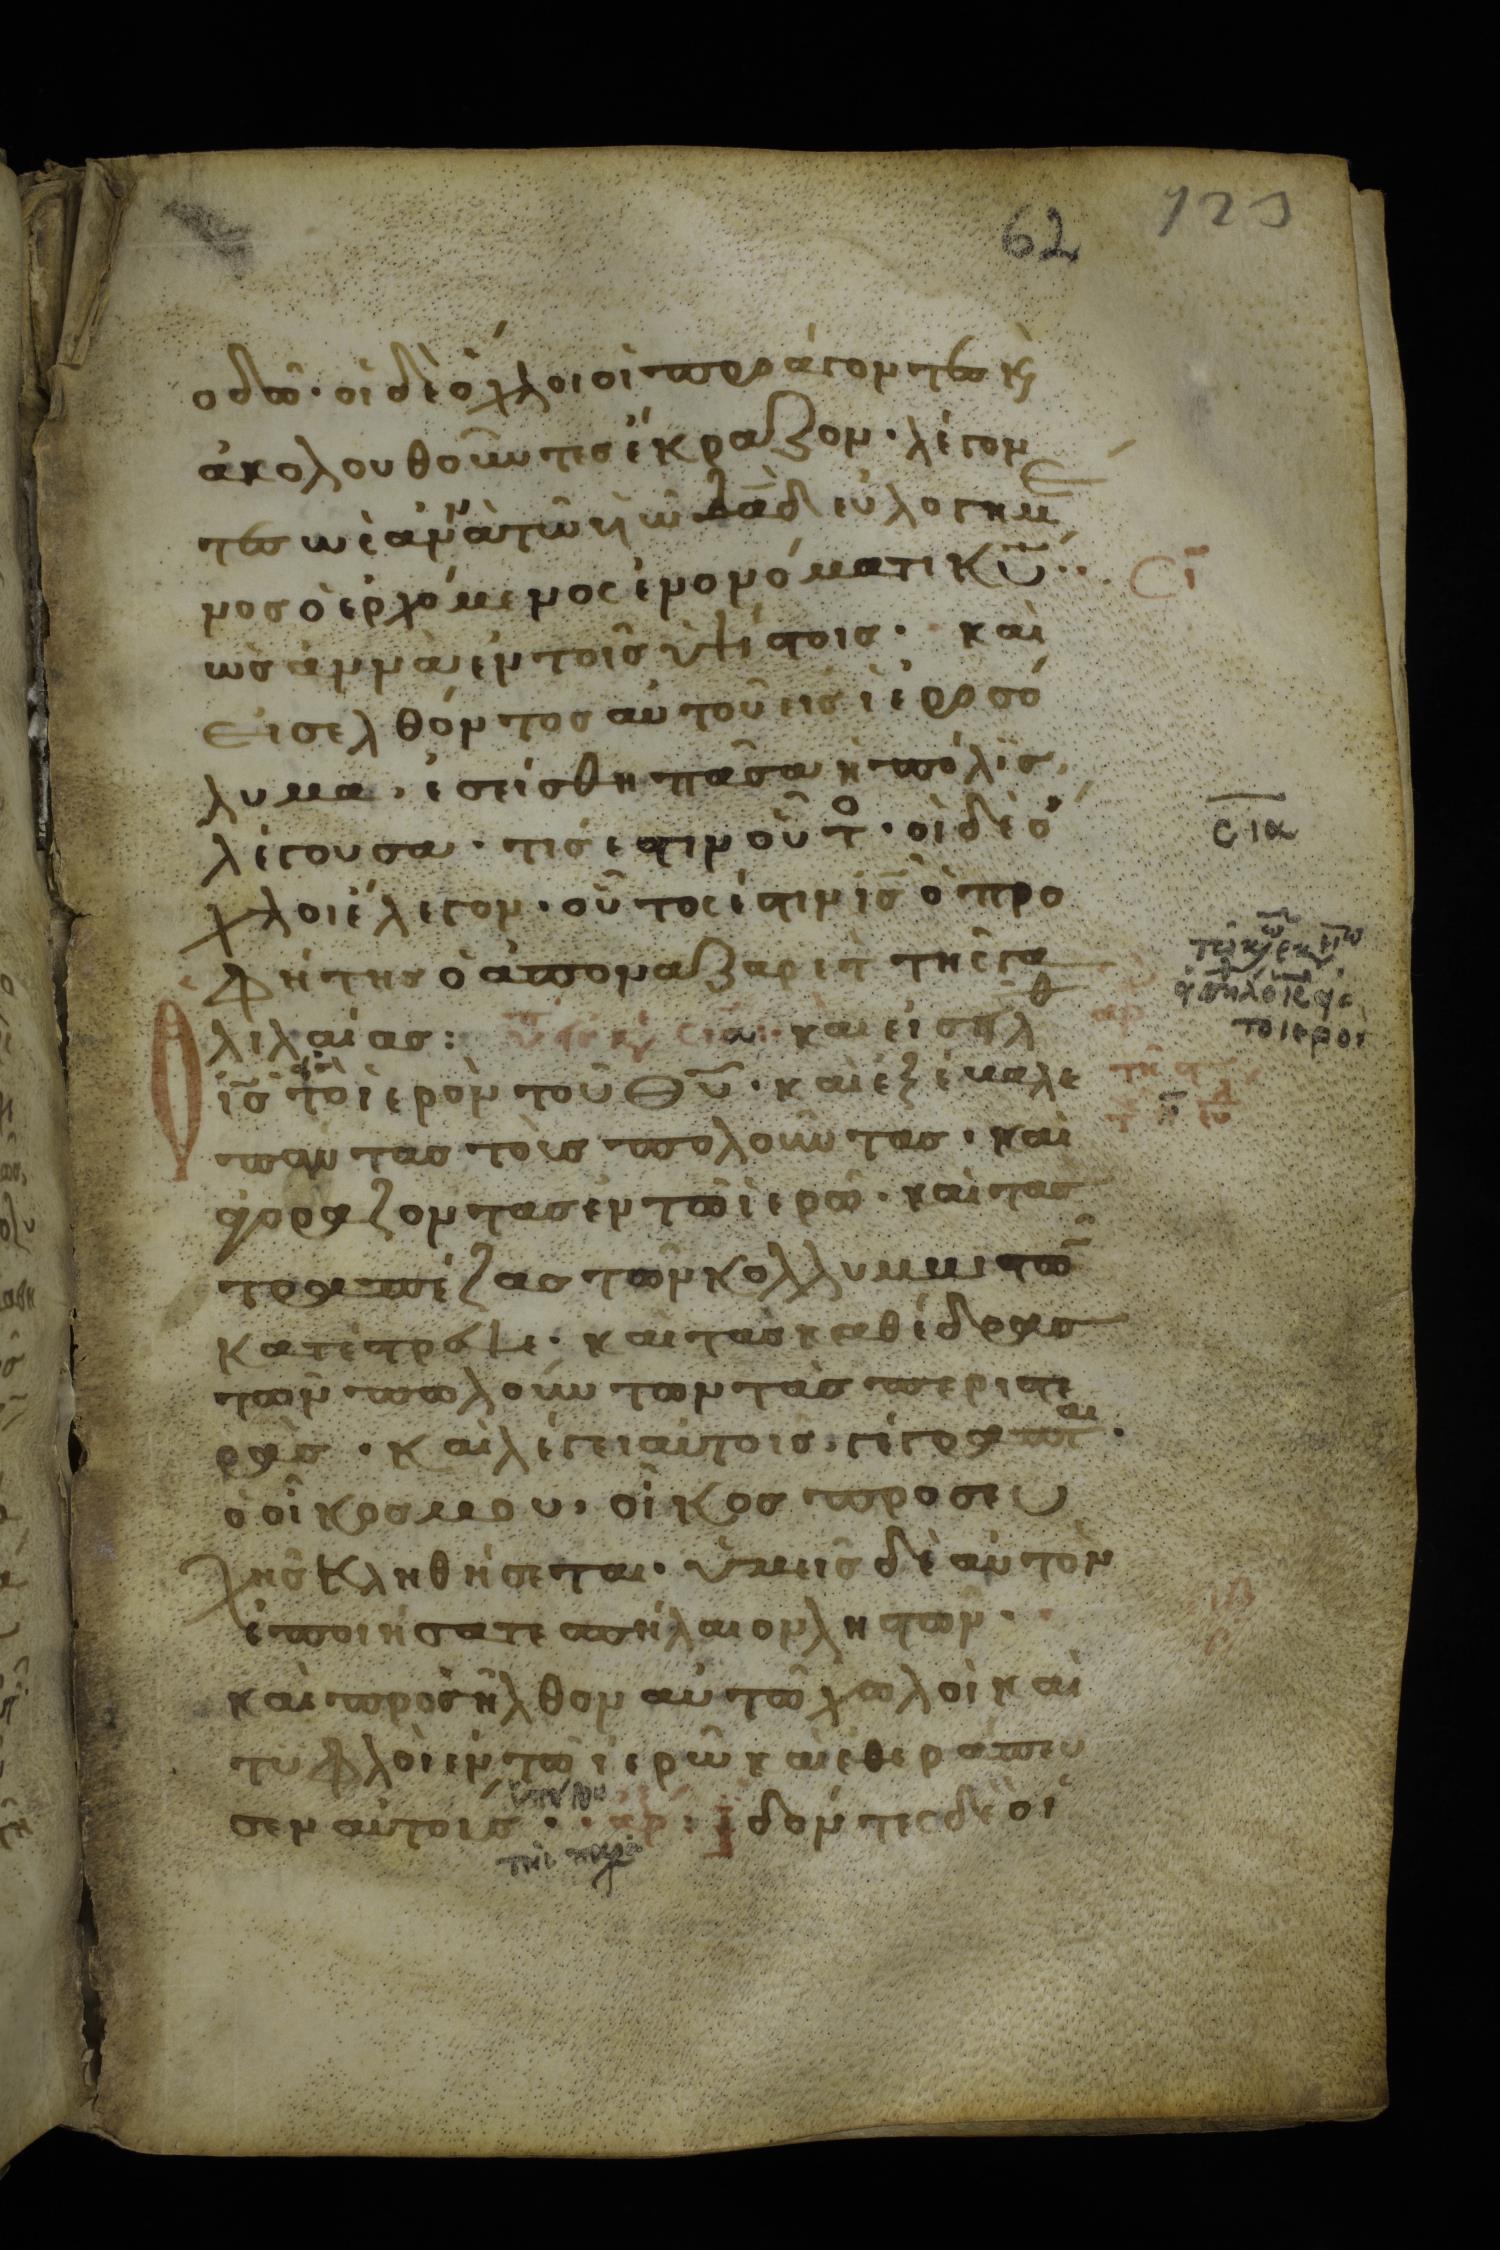 62 123
οδῶ· οἱ δὲ ὄχλοι οἱ προάγοντες κ(αὶ)
ἀκολουθοῦντες ἔκραζον· λέγον
τες ὡσἀννὰ τῶ υἱῶ δα̅δ εὐλογημέ
νος ὁ ἐρχόμενος ἐν ὀνόματι κ̅υ·
ὡσἀννὰ ἐν τοῖς ὑψίστοις· καὶ
εἰσελθόντος αὐτοῦ εἰς ἱεροσό
λυμα· ἐσείσθη πᾶσα ἡ πόλις,
λέγουσα· τίς ἐστιν οὗτο· οἱ δὲ ὄ
χλοι ἔλεγον· οὗτος ἐστιν ι̅ς̅ ὁ προ
φήτης ὁ ἀπο ναζαρὲτ τῆς γα
λιλαίας: και εἰσῆλθ
ι̅ς̅ εἰς τὸ ἱερὸν τοῦ θ̅υ̅· καὶ ἐξέβαλε
πάντας τοὺς πολοῦντας· καὶ
ἀγοράζοντας ἐν τῶ ἱερῶ· καὶ τας
τραπέζας τῶν κολλυβιστῶ̅
κατέστρεψε· καὶ τὰς καθέδρας
τῶν πωλούντων τὰς περιστε
ράς· καὶ λέγει αὐτοῖς, γέγραπται·
ὁ οἶκος μου, οἶκος προσευ
χῆς κληθήσεται· ὑμεῖς δὲ αὐτὸν
ἐποιήσατε σπήλαιον ληστῶν·
καὶ προσῆλθον αὐτῶ χωλοὶ καὶ
τυφλοὶ ἐν τῶ ἱερῶ καὶ ἐθεράπευ
σεν αὐτοὺς· ἀρ: ἰδόντες δὲ οἱ
σ̅ι̅
σ̅ι̅α̅